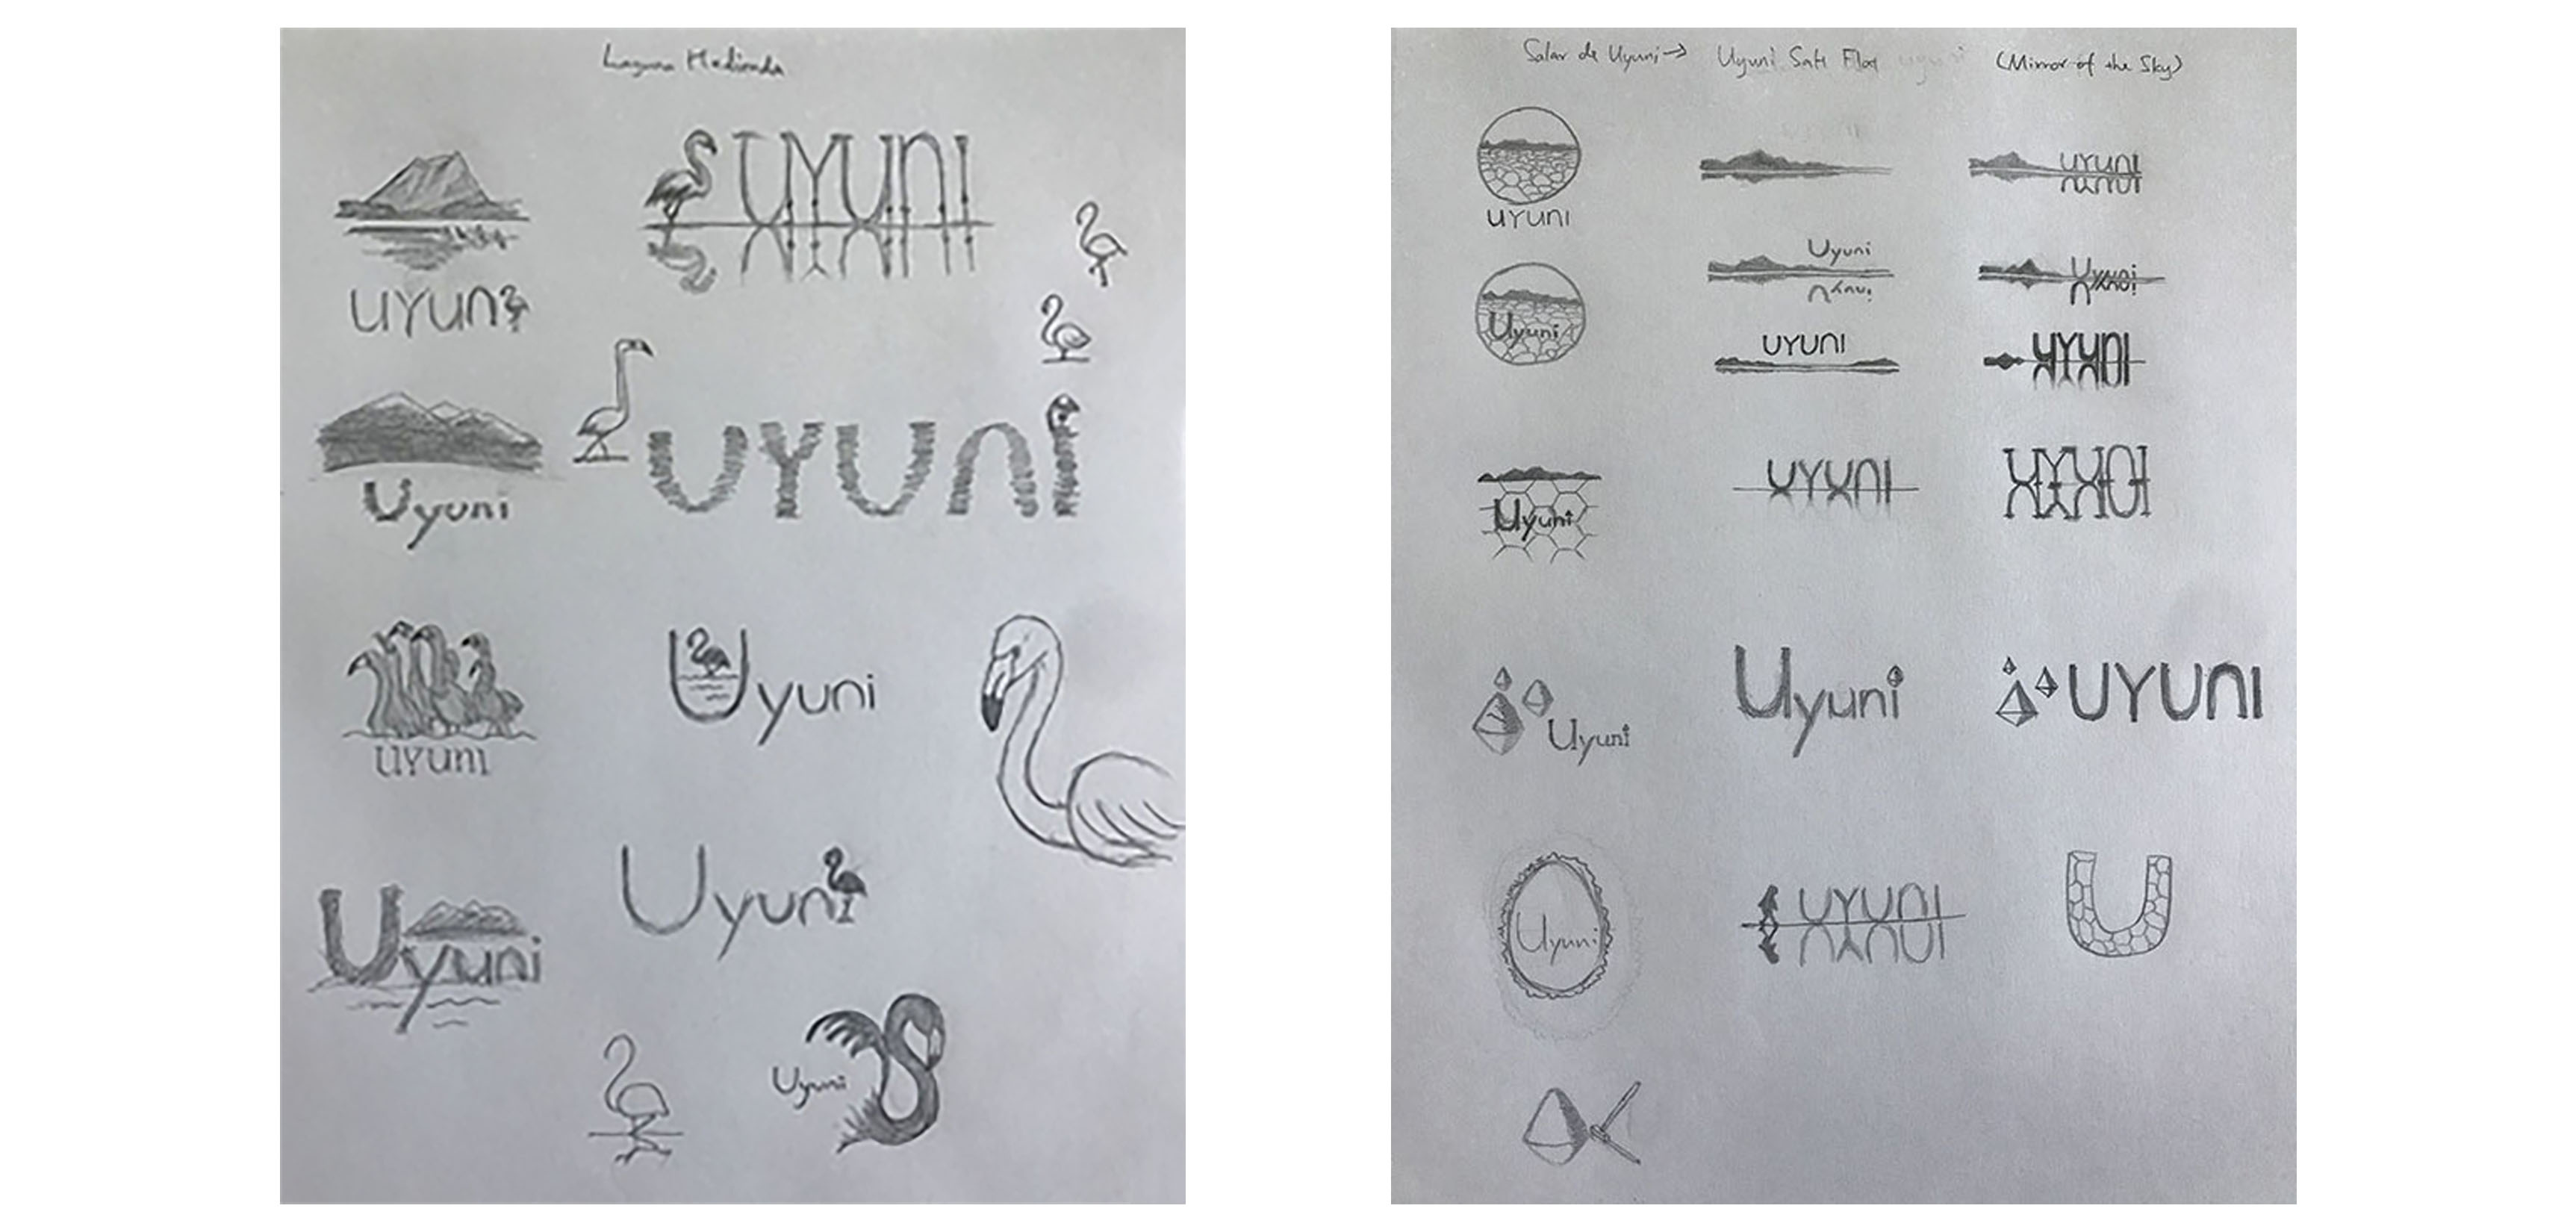 Laguna Hedionda
UYUNI
UYUNI
Uyuni
UYUNI
UYUNI
Uyuni
Uyuni
Uyuni
Uyuni
Salar de Uyuni → Uyuni Salt Flat uyuni (Mirror of the Sky)
UYUNI
UYUNI
Uyuni
Uyuni
Uyuni
Uyuni
UYUNI
UYUNI
Uyuni
UYUNI
UYUNI
Uyuni
Uyuni
UYUNI
Uyuni
UYUNI
U